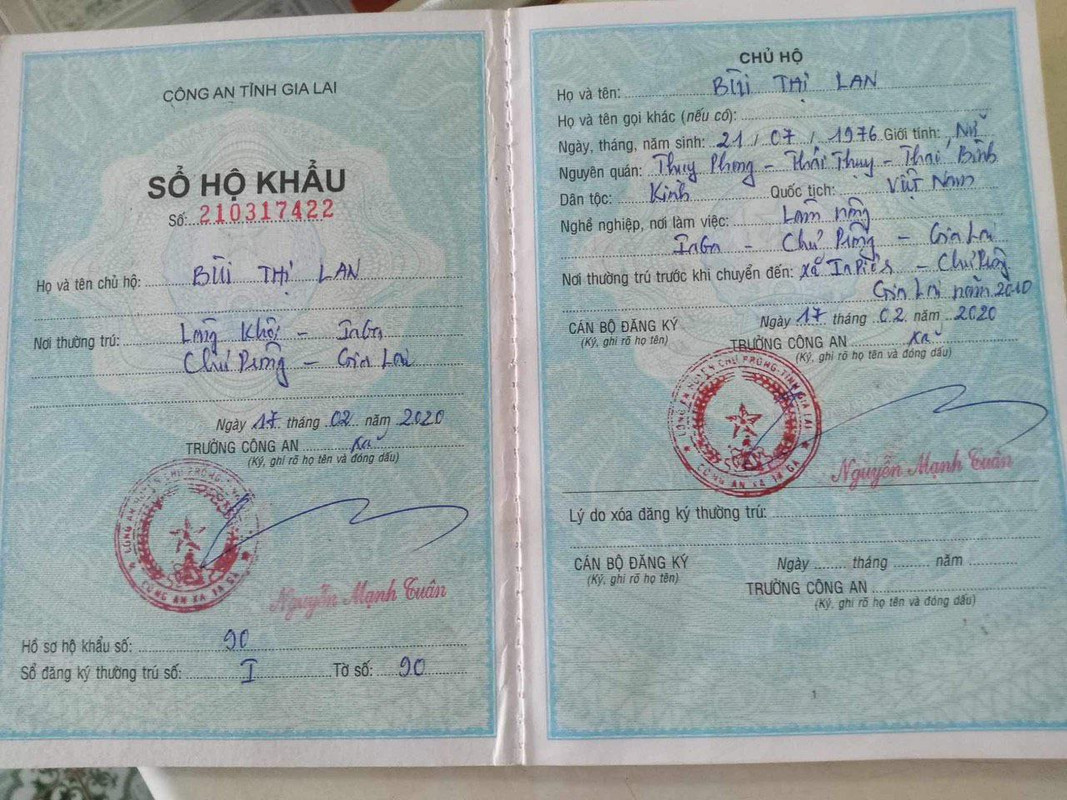 CÔNG AN TỈNH GIA LAI
SỔ HỘ KHẨU
Số: 210317422
Họ và tên chủ hộ: BÙI THỊ LAN
Nơi thường trú: Làng Khôi - IaGa
Chư Prông - Gia Lai
Ngày 17 tháng 02 năm 2020
TRƯỞNG CÔNG AN xã
(Ký, ghi rõ họ tên và đóng dấu)
CÔNG AN XÃ IA GA
Nguyễn Mạnh Tuân
Hồ sơ hộ khẩu số: 90
Sổ đăng ký thường trú số: I Tờ số: 90
CHỦ HỘ
Họ và tên: BÙI THỊ LAN
Họ và tên gọi khác (nếu có):
Ngày, tháng, năm sinh: 21 / 07 / 1976 Giới tính: Nữ
Nguyên quán: Thụy Phong - Thái Thụy - Thái Bình
Dân tộc: Kinh Quốc tịch: Việt Nam
Nghề nghiệp, nơi làm việc: Làm nông
IaGa - Chư Prông - Gia Lai
Nơi thường trú trước khi chuyển đến: xã - Chư Prông
Gia Lai năm 2010
CÁN BỘ ĐĂNG KÝ Ngày 17 tháng 02 năm 2020
(Ký, ghi rõ họ tên) TRƯỞNG CÔNG AN xã
(Ký, ghi rõ họ tên và đóng dấu)
CÔNG AN HUYỆN CHƯ PRÔNG-TỈNH GIA LAI
CÔNG AN XÃ IA GA
Nguyễn Mạnh Tuân
Lý do xóa đăng ký thường trú:
CÁN BỘ ĐĂNG KÝ Ngày tháng năm
(Ký, ghi rõ họ tên) TRƯỞNG CÔNG AN
(Ký, ghi rõ họ tên và đóng dấu)
1